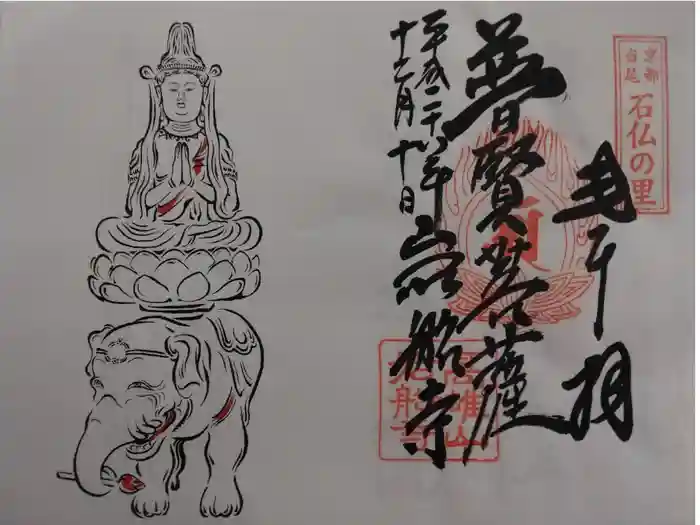 京都
当尾
石仏の里
奉拝
普賢菩薩
平成二十八年
十二月十日
岩船寺
高雄山
岩船寺